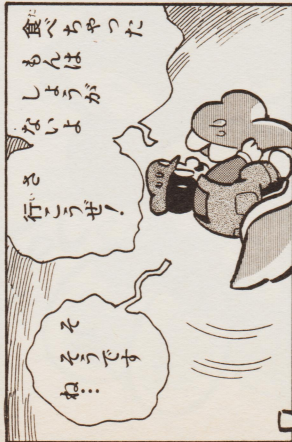 食べちゃった
もんは
しょうが
ないよ
さ
行こうぜ!
そ
そうです
ね…